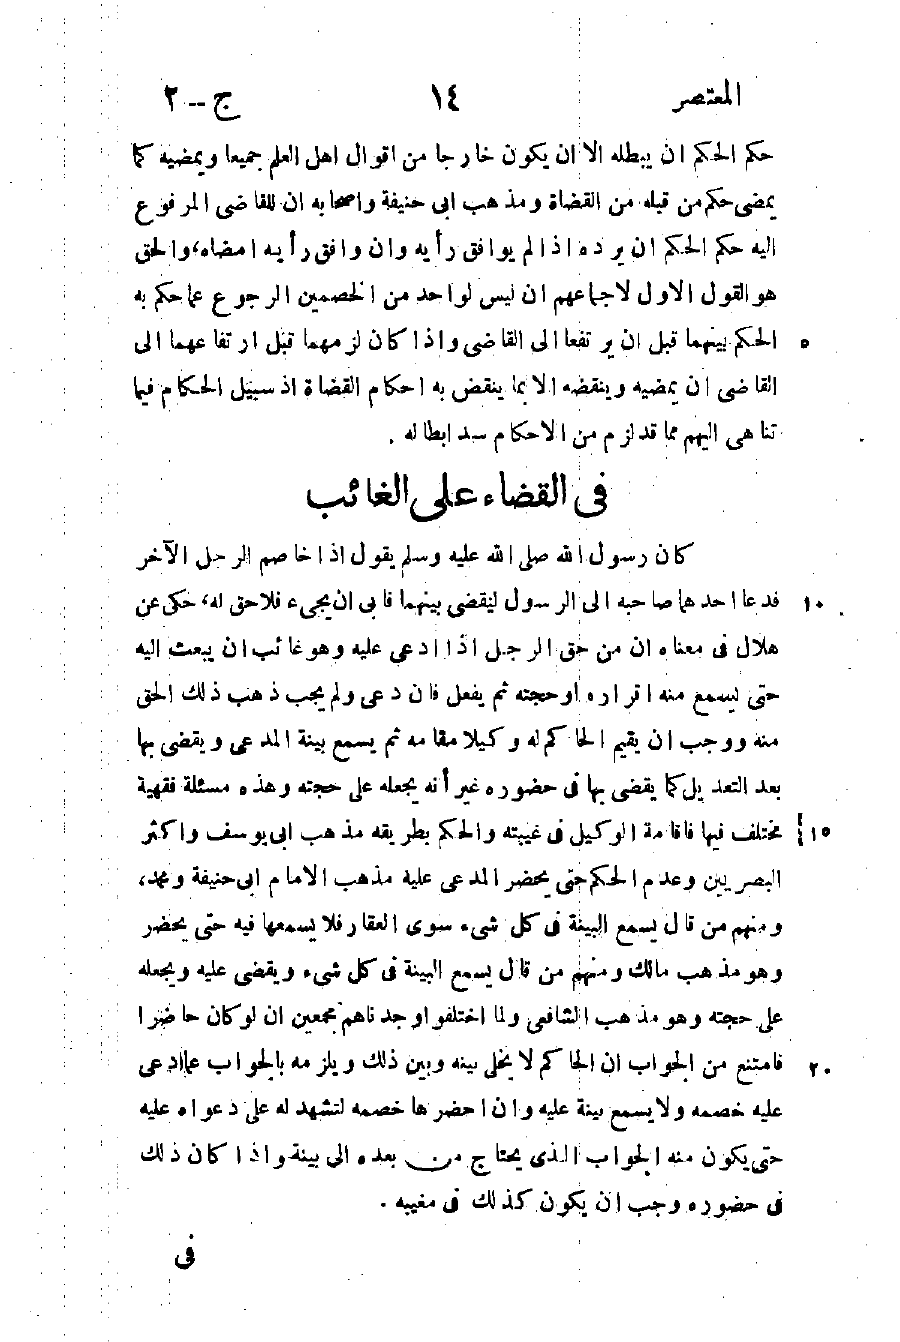 المعتصر ١٤ ج -- ٢
حكم الحكم ان يبطله الا ان يكون خارجا من اقوال اهل العلم جميعا ويمضيه كما
يمضى حكم من قبله من القضاة ومذهب ابى حنيفة واصحابه ان للقاضى المرفوع
اليه حكم الحكم ان يرده اذا لم يوافق رأيه وان وافق رأيه امضاه، والحق
هو القول الاول لاجماعهم ان ليس لواحد من الخصمين الرجوع عما حكم به
الحكم بينهما قبل ان يرتفعا الى القاضى واذا كان لزمهما قبل ارتفاعهما الى ٥
القاضى ان يمضيه وينقضه الا بما ينقض به احكام القضاة اذ سبيل الحكام فيما
تناهى اليهم مما قد لزم من الاحكام سد ابطاله .
فى القضاء على الغائب
كان رسول الله صلى الله عليه وسلم يقول اذا خاصم الرجل الآخر
فدعا احدهما صاحبه الى الرسول ليقضى بينهما فابى ان يجىء فلاحق له، حكى عن ١٠
هلال فى معناه ان من حق الرجل اذا ادعى عليه وهو غائب ان يبعث اليه
حتى ليسمع منه اقراره او حجته ثم يفعل فان دعى ولم يجب ذهب ذلك الحق
منه ووجب ان يقيم الحاكم له وكيلا مقامه ثم يسمع بينة المدعى ويقضى بها
بعد التعديل كما يقضى بها فى حضوره غير أنه يجعله على حجته وهذه مسئلة فقهية
مختلف فيها فاقامة الوكيل فى غيبته والحكم بطريقه مذهب ابى يوسف واكثر ١٥
البصريين وعدم الحكم حتى يحضر المدعى عليه مذهب الامام ابى حنيفة ومحمد،
ومنهم من قال يسمع البينة فى كل شىء سوى العقار فلا يسمعها فيه حتى يحضر
وهو مذهب مالك ومنهم من قال يسمع البينة فى كل شىء ويقضى عليه ويجعله
على حجته وهو مذهب الشافعى ولما اختلفوا وجدناهم مجمعين ان لو كان حاضرا
فامتنع من الجواب ان الحاكم لا يخلى بينه وبين ذلك ويلزمه بالجواب عما ادعى ٢٠
عليه خصمه ولا يسمع بينة عليه وان احضرها خصمه لتشهد له على دعواه عليه
حتى يكون منه الجواب الذى يحتاج من بعده الى بينة واذا كان ذلك
فى حضوره وجب ان يكون كذلك فى مغيبه .
فى